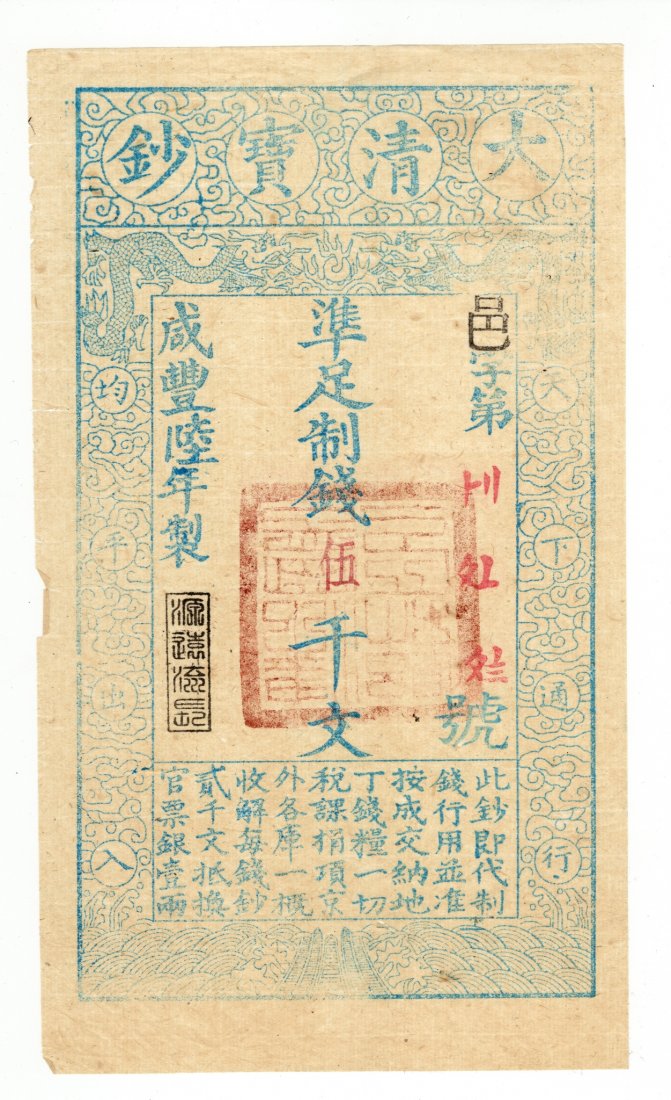 大清寶鈔
天下通行
均平出入
邑字第
號
準足制錢伍千文
咸豐陸年製
源遠流長
此鈔即代制
錢行用並准
按成交納地
丁錢糧一切
稅課捐項京
外各庫一概
收解每錢鈔
貳千文抵換
官票銀壹兩